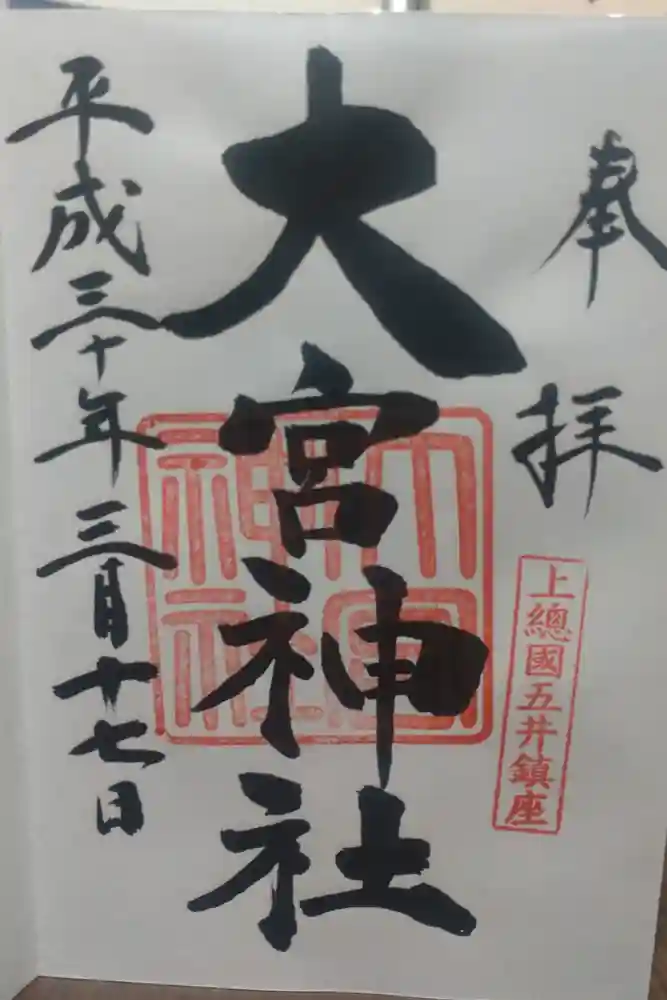 奉拝
上總國五井鎮座
大宮神社
大宮神社
平成三十年三月十七日